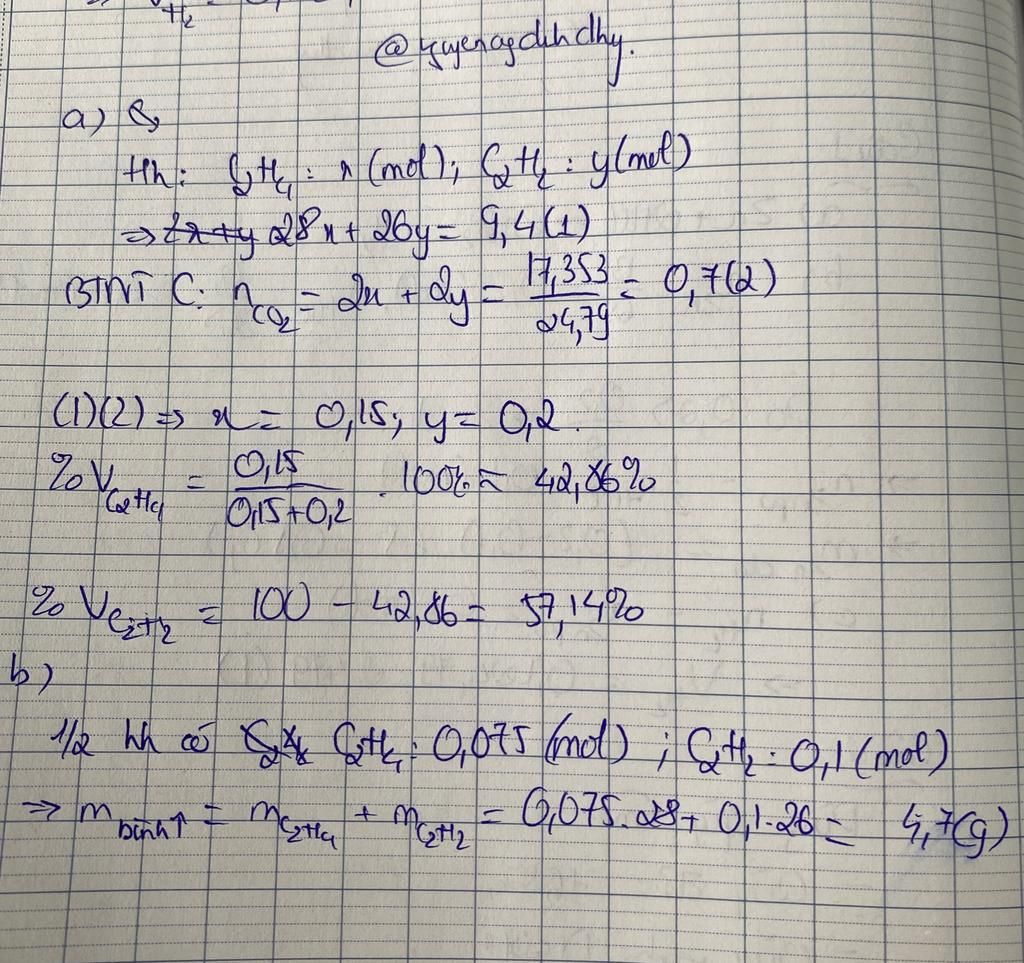 H₂
a)
Hh: C₂H₄: x (mol); C₂H₂: y (mol)
⇒ 2x+y 28x + 26y = 9,4 (1)
BTNT C: n CO₂ = 2x + 2y = 17,353/24,79 = 0,7 (2)
(1)(2) ⇒ x = 0,15; y = 0,2.
%V C₂H₄ = 0,15/(0,15+0,2) . 100% ≈ 42,86%
%V C₂H₂ = 100 - 42,86 = 57,14%
b)
1/2 hh có C₂H₄: 0,075 (mol); C₂H₂: 0,1 (mol)
⇒ m bình↑ = m C₂H₄ + m C₂H₂ = 0,075.28 + 0,1.26 = 4,7(g)